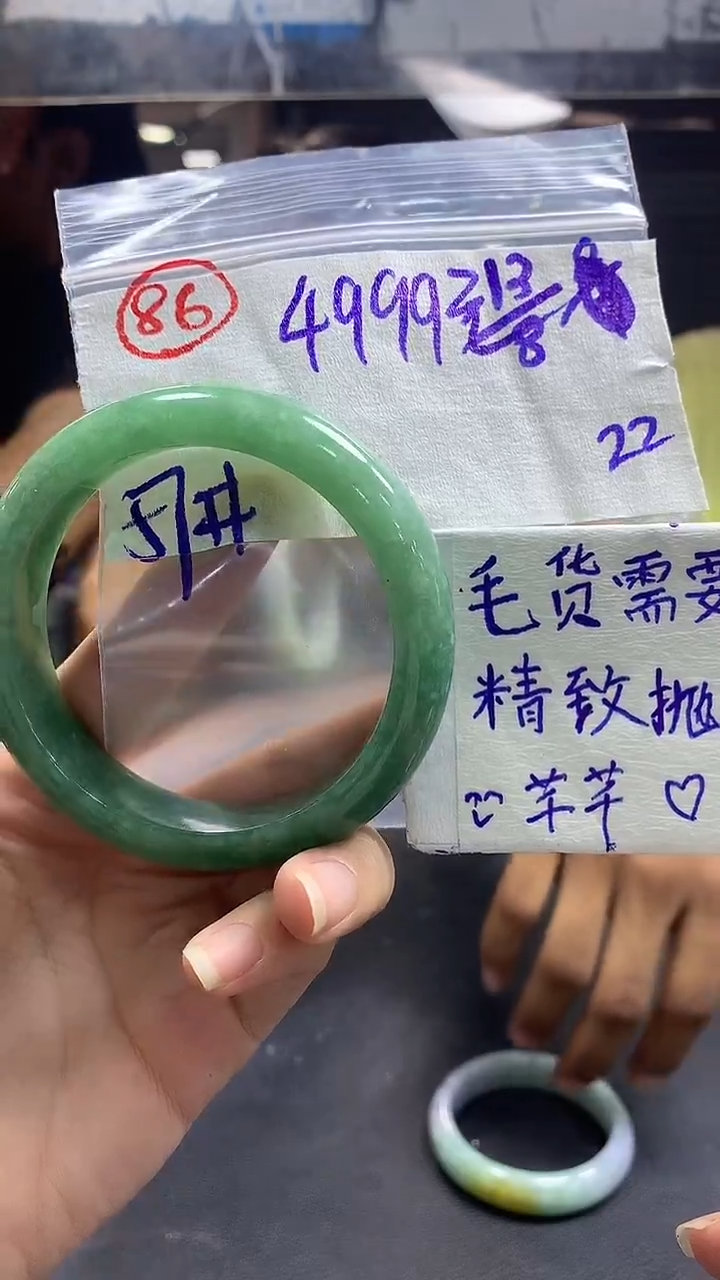 86
4999
22
57#
毛货需要
精致抛
芊芊 ♡